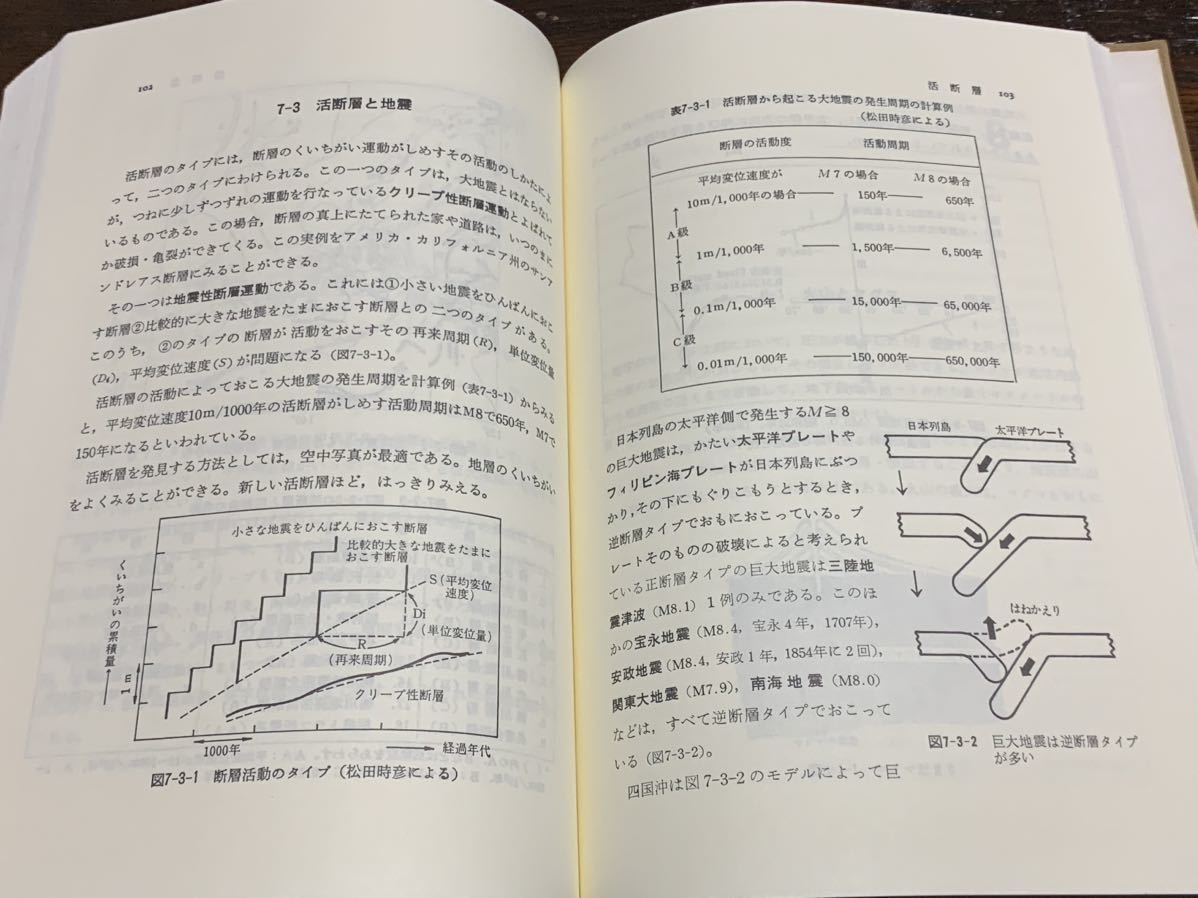 102
7-3 活断層と地震
活断層のタイプには，断層のくいちがい運動がしめすその活動のしかたによ
って，二つのタイプにわけられる。この一つのタイプは，大地震とはならない
が，つねに少しずつずれの運動を行なっているクリープ性断層運動とよばれて
いるものである。この場合，断層の真上にたてられた家や道路は，いつのまに
か破損・亀裂ができてくる。この実例をアメリカ・カリフォルニア州のサンア
ンドレアス断層にみることができる。
その一つは地震性断層運動である。これには①小さい地震をひんぱんにおこ
す断層②比較的に大きな地震をたまにおこす断層との二つのタイプがある。
このうち，②のタイプの断層が活動をおこすその再来周期(R)，単位変位量
(Di)，平均変位速度(S)が問題になる（図7-3-1）。
活断層の活動によっておこる大地震の発生周期を計算例（表7-3-1）からみる
と，平均変位速度10m/1000年の活断層がしめす活動周期はM8で650年，M7で
150年になるといわれている。
活断層を発見する方法としては，空中写真が最適である。地層のくいちがい
をよくみることができる。新しい活断層ほど，はっきりみえる。
小さな地震をひんぱんにおこす断層
比較的大きな地震をたまに
おこす断層
S（平均変位
速度）
Di
（単位変位量）
R
（再来周期）
クリープ性断層
くいちがいの累積量
1m
1000年
経過年代
図7-3-1 断層活動のタイプ（松田時彦による）
活断層 103
表7-3-1 活断層から起こる大地震の発生周期の計算例
（松田時彦による）
断層の活動度 活動周期
平均変位速度が M7の場合 M8の場合
10m/1,000年の場合 150年 650年
A級
1m/1,000年 1,500年 6,500年
B級
0.1m/1,000年 15,000年 65,000年
C級
0.01m/1,000年 150,000年 650,000年
日本列島の太平洋側で発生するM≧8
の巨大地震は，かたい太平洋プレートや
フィリピン海プレートが日本列島にぶつ
かり，その下にもぐりこもうとするとき，
逆断層タイプでおもにおこっている。プ
レートそのものの破壊によると考えられ
ている正断層タイプの巨大地震は三陸地
震津波（M8.1）1例のみである。このほ
かの宝永地震（M8.4，宝永4年，1707年），
安政地震（M8.4，安政1年，1854年に2回），
関東大地震（M7.9），南海地震（M8.0）
などは，すべて逆断層タイプでおこって
いる（図7-3-2）。
四国沖は図7-3-2のモデルによって巨
日本列島 太平洋プレート
はねかえり
図7-3-2 巨大地震は逆断層タイプ
が多い